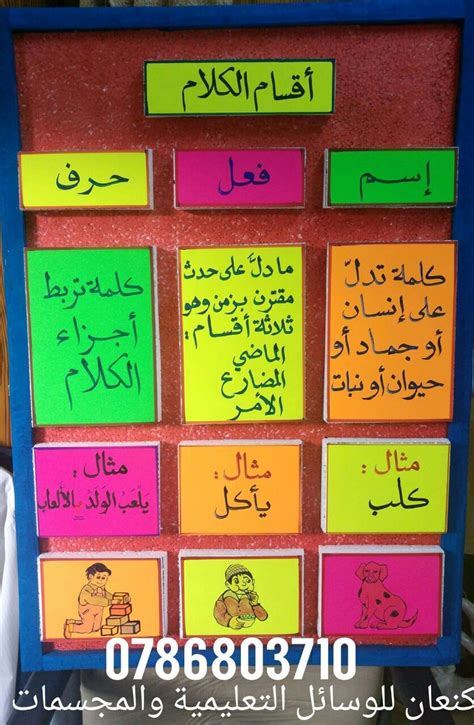 أقسام الكلام
إسم
فعل
حرف
كلمة تدلّ
على إنسان
أو جماد أو
حيوان أو نبات
ما دلَّ على حدث
مقترن بزمن وهو
ثلاثة أقسام :
الماضي
المضارع
الأمر
كلمة تربط
أجزاء
الكلام
مثال :
كلب
مثال :
يأكل
مثال :
يلعب الولد بالألعاب
0786803710
كنعان للوسائل التعليمية والمجسمات